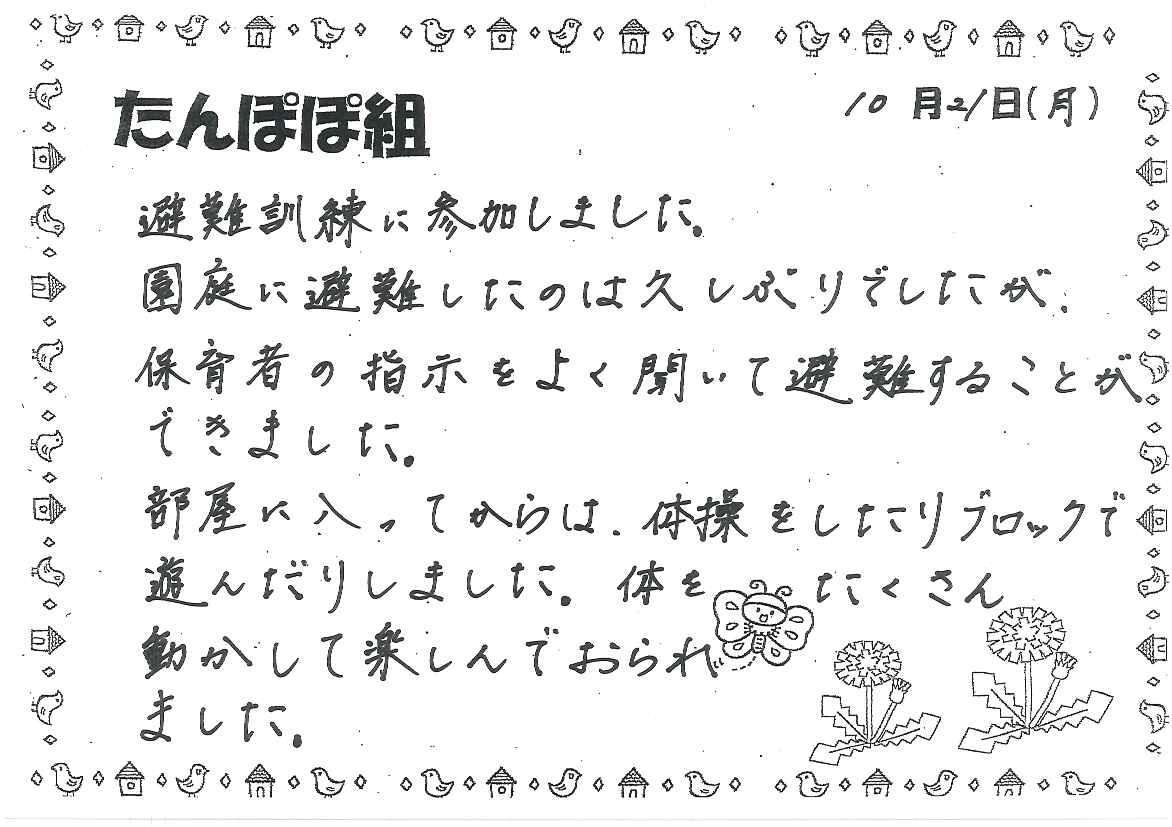 たんぽぽ組
10月21日(月)
避難訓練に参加しました。
園庭に避難したのは久しぶりでしたが、
保育者の指示をよく聞いて避難することが
できました。
部屋に入ってからは、体操をしたりブロックで
遊んだりしました。体をたくさん
動かして楽しんでおられ
ました。